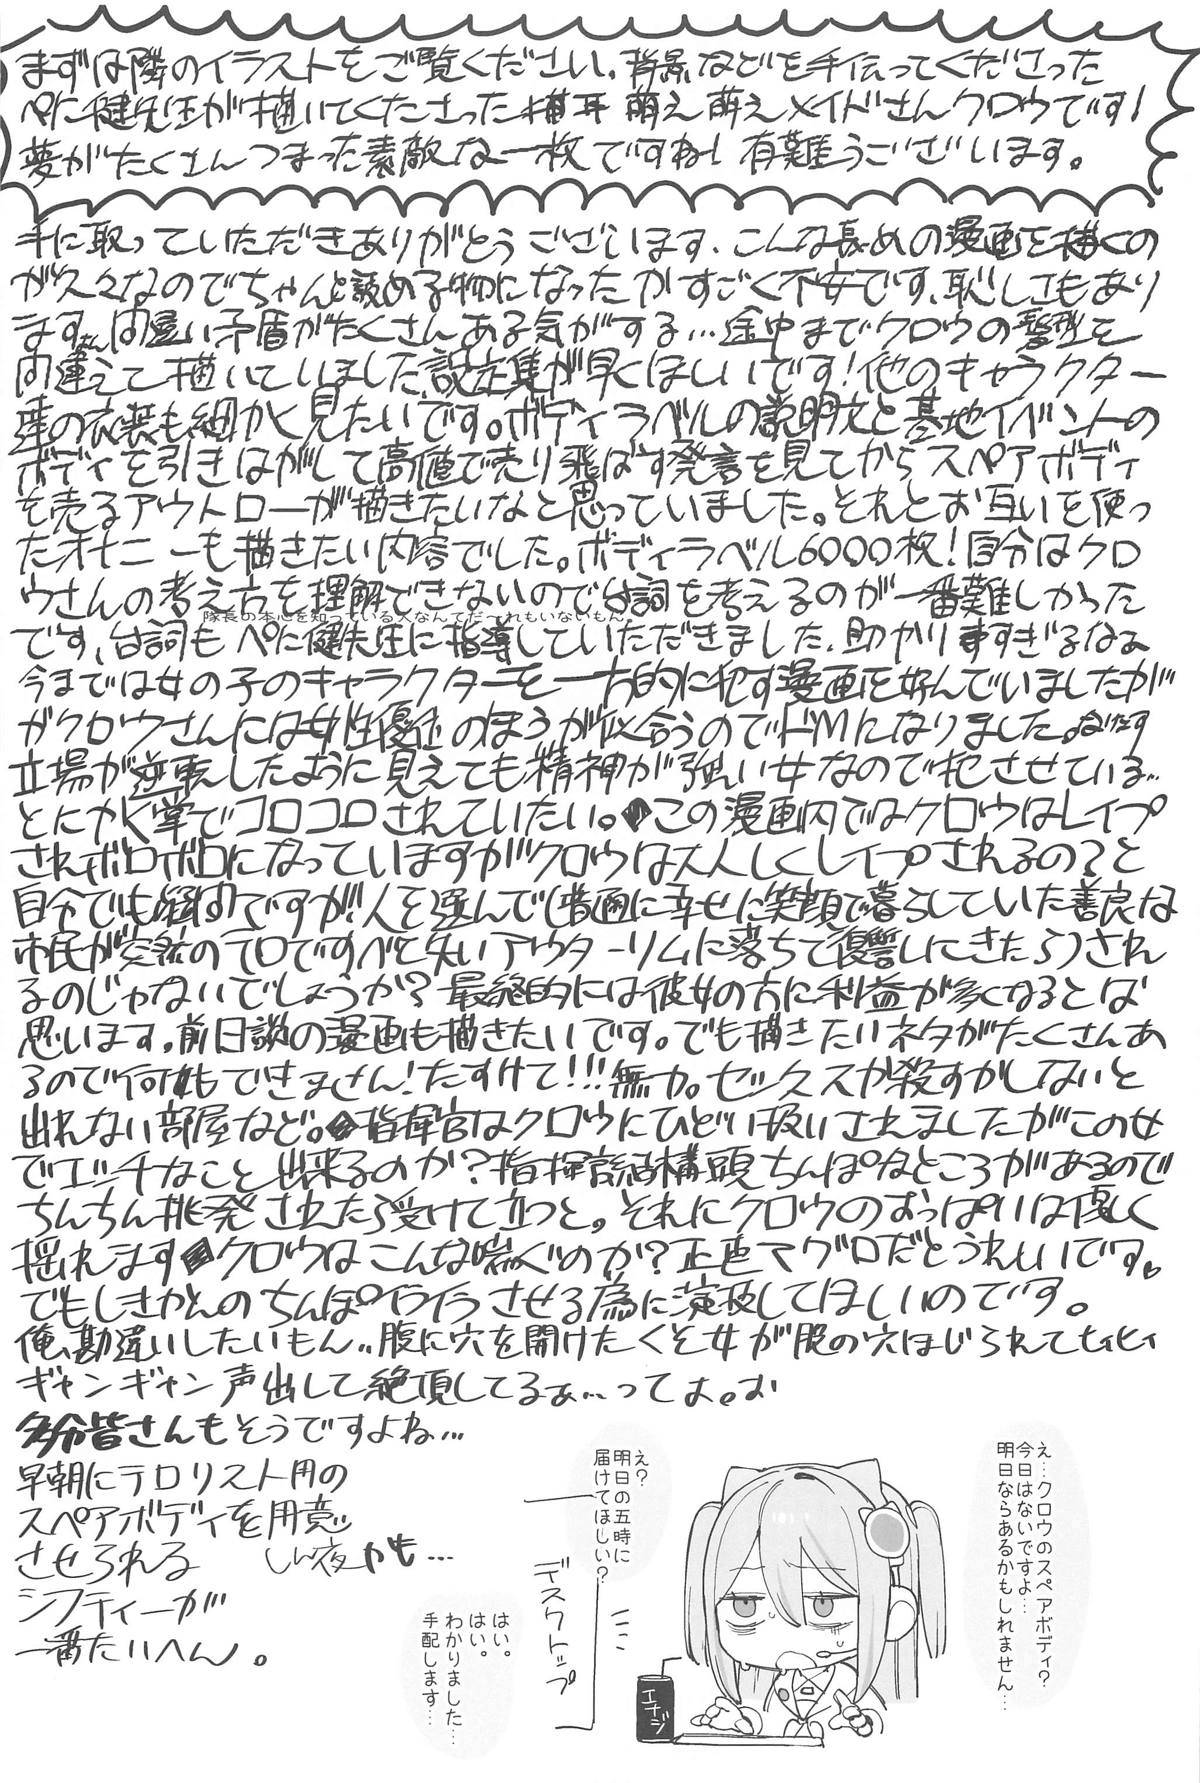 まずは隣のイラストをご覧ください。背景などを手伝ってくださった
ぺに健先生が描いてくださった猫耳萌え萌えメイドさんクロウです!
夢がたくさんつまった素敵な一枚ですね!有難うございます。
手に取っていただきありがとうございます、こんな長めの漫画を描くの
が久々なのでちゃんと読める物になったかすごく不安です、恥しさもあり
ます。間違い矛盾がたくさんある気がする…途中までクロウの髪型を
間違えて描いていました設定集が早くほしいです!他のキャラクター
達の衣装も細かく見たいです。ボディラベルの説明文と基地イベントの
ボディを引きはがして高値で売り飛ばす発言を見てからスペアボディ
を売るアウトローが描きたいなと思っていました。それとお互いを使っ
たオナニーも描きたい内容でした。ボディラベル6000枚!自分はクロ
ウさんの考え方を理解できないので台詞を考えるのが一番難しかった
隊長の本心を知っている人なんてだ~れもいないもん。
です、台詞もぺに健先生に指導していただきました、助かりますすぎるなぁ
今までは女の子のキャラクターを一方的に犯す漫画を好んでいましたがだ
がクロウさんには女性優位のほうが似合うのでドMになりました。
立場が逆転したように見えても精神が強い女なので犯させている…
とにかく掌でコロコロされていたい。この漫画内ではクロウはレイプ
されボロボロになっていますがクロウは大人しくレイプされるの?と
自分でも疑問ですが!人を選んで(普通に幸せに笑顔で暮らしていた善良な
市民が突然のテロですべてを失いアウターリムに落ちて復讐しにきたら)され
るのじゃないでしょうか?最終的には彼女の方に利益が多くなるとは
思います。前日談の漫画も描きたいです。でも描きたいネタがたくさんあ
るので何もできません!たすけて!!!無力。セックスか殺すかしないと
出れない部屋など。指揮官はクロウにひどい扱いされましたがこの女
でエッチなこと出来るのか?指揮官結構頭ちんぽなところがあるので
ちんちん挑発されたら受けて立つと。それにクロウのおっぱいは優しく
揺れます クロウはこんな喘ぐのか?正直マグロだとうれしいです。
でもしきかんのちんぽイライラさせる為に演技してほしいのです。
俺、勘違いしたいもん..腹に穴を開けたくそ女が股の穴ほじられてヒィヒィ
ギャンギャン声出して絶頂してるぁ…ってよ。お
多分皆さんもそうですよね…
早朝にテロリスト用の
スペアボディを用意
させられる しん夜かも…
シフティーが
一番たいへん。
え…クロウのスペアボディ?
今日はないですよ…
明日ならあるかもしれません…
え?
明日の五時に
届けてほしい?
デスクトップ
はい。
はい。
わかりました…
手配します…
エナジ